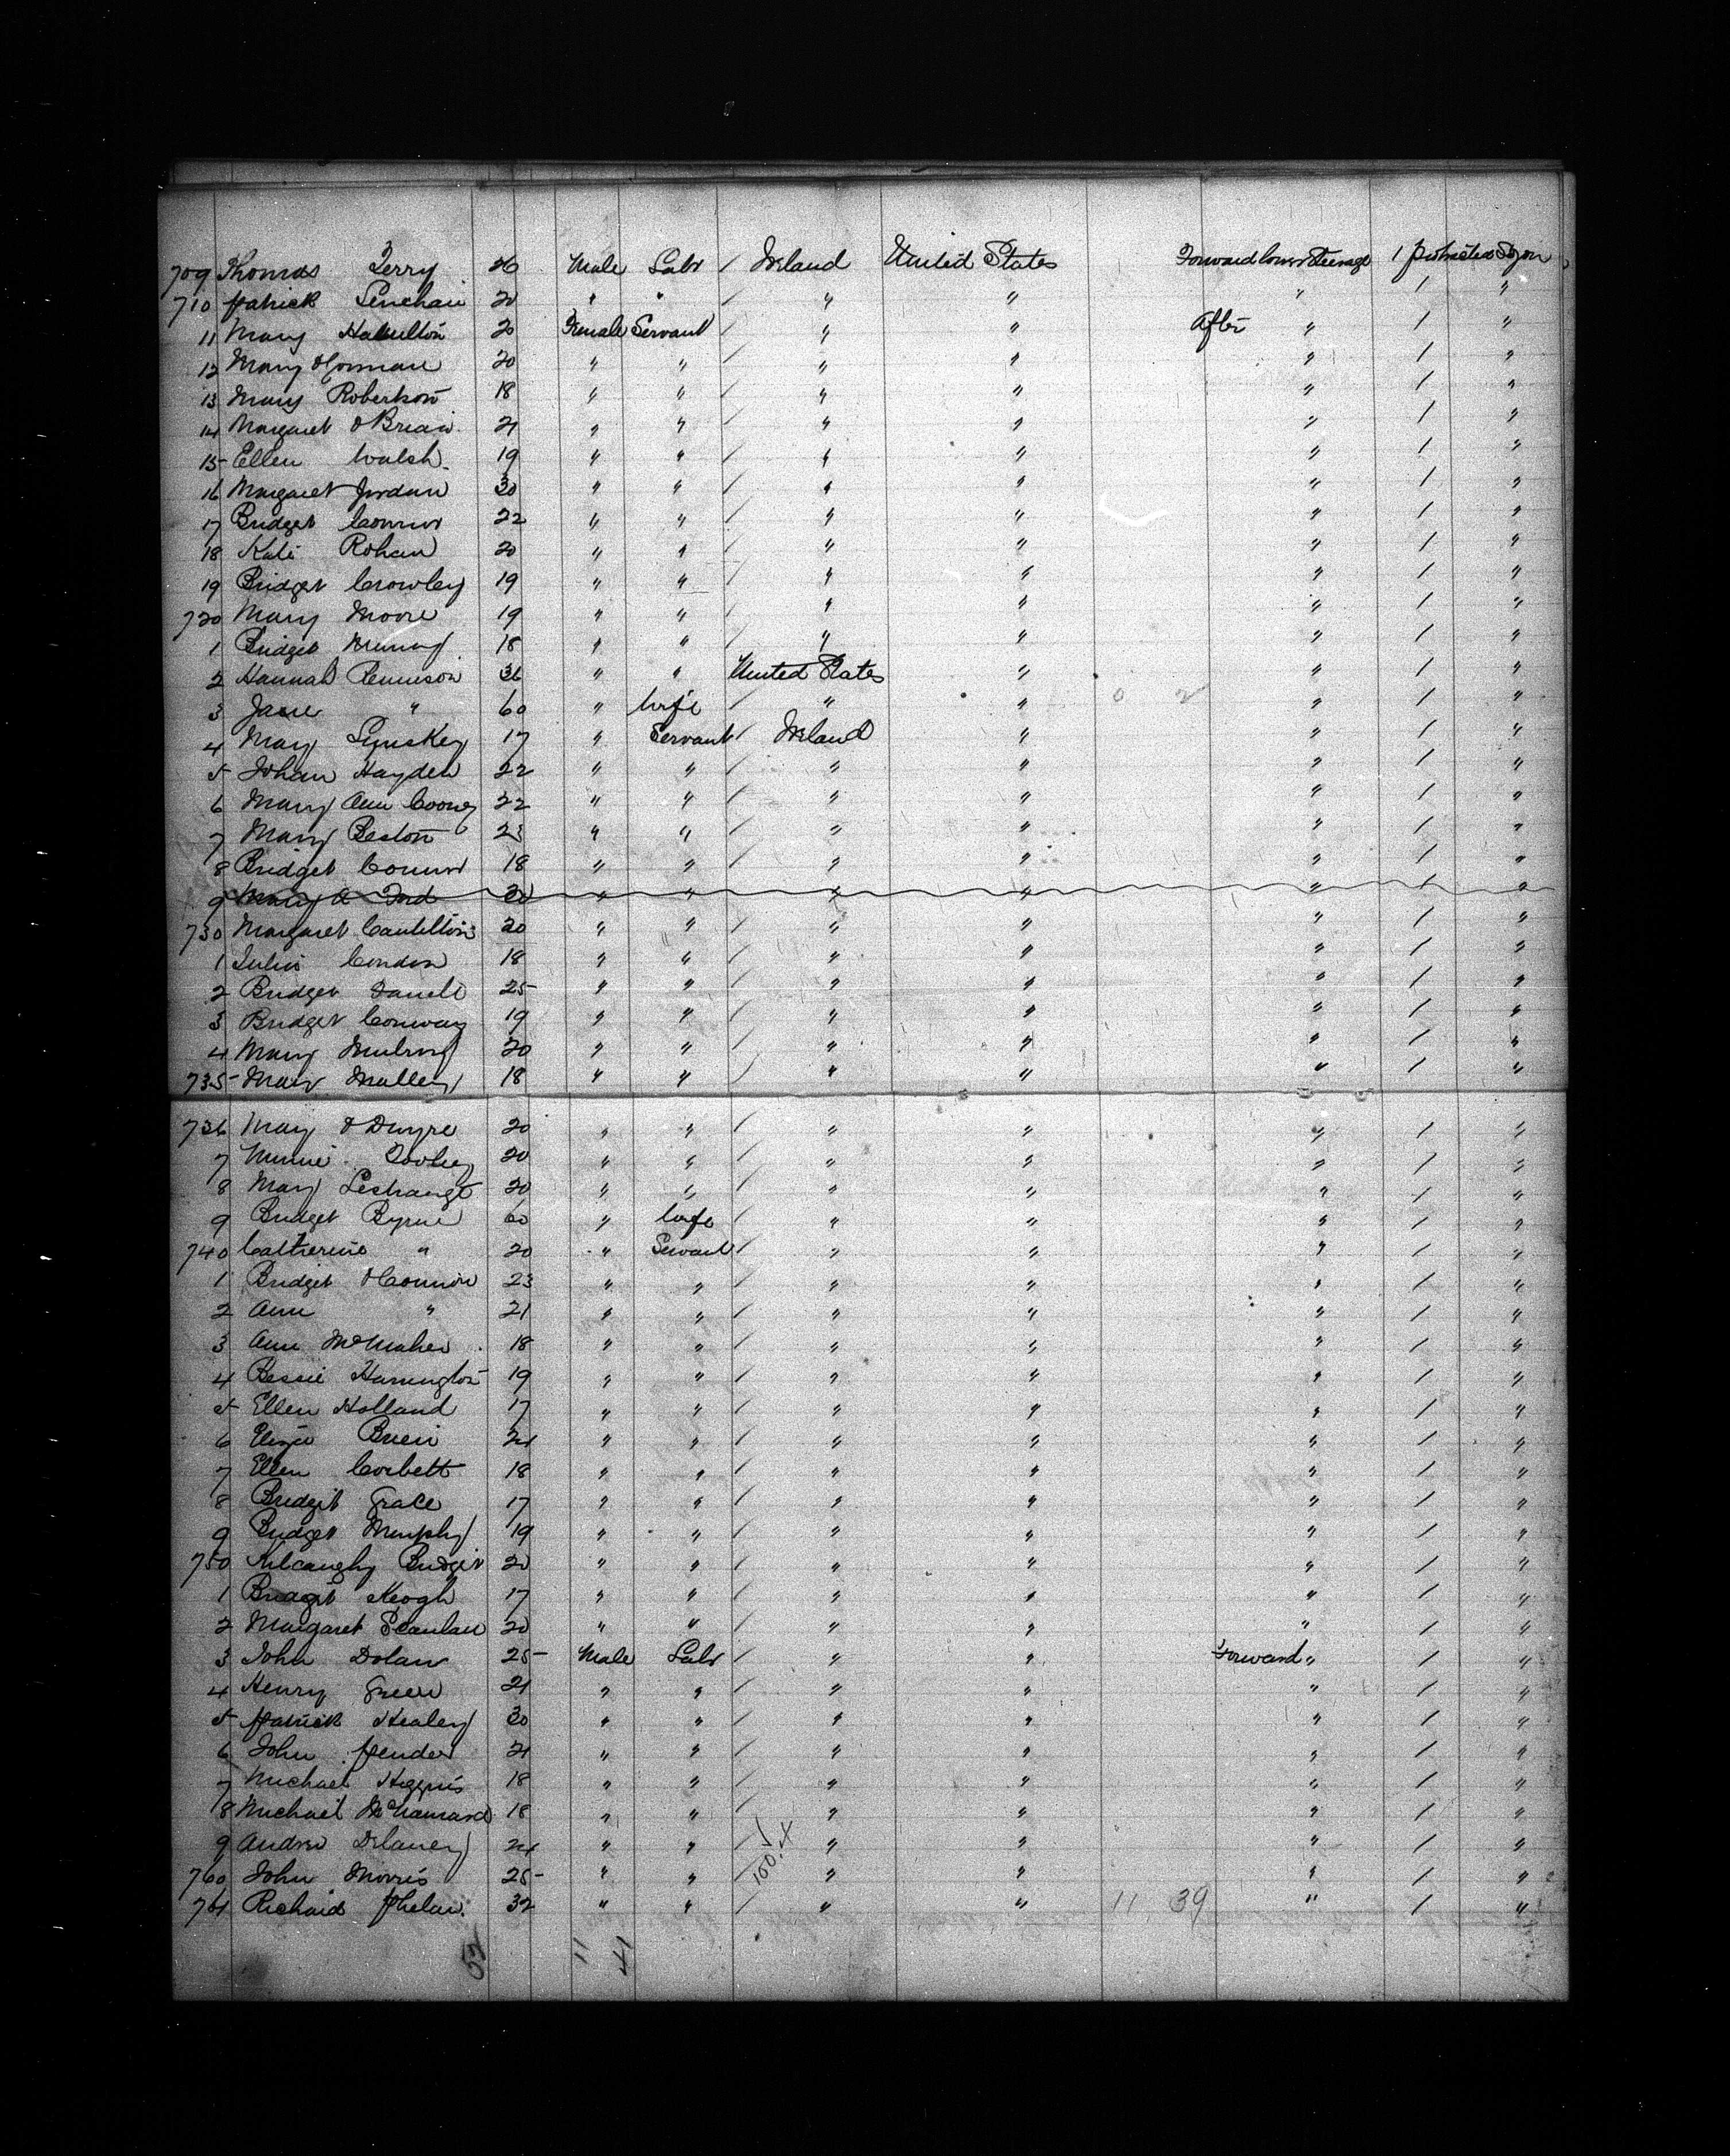 709 Thomas Terry 26 Male Labr / Ireland United States Forward lower Steerage 1 protracted Sojon
710 Patrick Lenehan 20 " " / " " " / "
11 Mary Hamilton 20 Female Servant / " " After " / "
12 Mary O'Gorman 20 " " / " " " / "
13 Mary Robertson 18 " " / " " " / "
14 Margaret O'Brien 21 " " / " " " / "
15 Ellen Walsh 19 " " / " " " / "
16 Margaret Jordan 30 " " / " " " / "
17 Bridget Connor 22 " " / " " " / "
18 Kate Rohan 20 " " / " " " / "
19 Bridget Crowley 19 " " / " " " / "
720 Mary Moore 19 " " / " " " / "
1 Bridget 18 " " / " " " / "
2 Hannah Rennison 36 " " United States " " / "
3 Jane " 60 " Wife / " " 0 2 " / "
4 Mary Lynskey 17 " Servant / Ireland " " / "
5 Johan Hayden 22 " " / " " " / "
6 Mary Ann Cooney 22 " " / " " " / "
7 Mary Beston 23 " " / " " " / "
8 Bridget Connor 18 " " / " " " / "
9 Mary A Ford 20 " " " " " / "
730 Margaret Cantillon 20 " " / " " " / "
1 Julia Condon 18 " " / " " " / "
2 Bridget Farrell 25 " " / " " " / "
3 Bridget Conway 19 " " / " " " / "
4 Mary 20 " " / " " " / "
735 Mary Malley 18 " " / " " " / "
736 Mary O'Dwyre 20 " " / " " " / "
7 Minnie 20 " " / " " " / "
8 Mary Lestrange 20 " " / " " " / "
9 Bridget Byrne 60 " Wife / " " " / "
740 Catherine " 20 " Servant / " " " / "
1 Bridget O'Connor 23 " " / " " " / "
2 Ann " 21 " " / " " " / "
3 Ann McMahon 18 " " / " " " / "
4 Bessie Harrington 19 " " / " " " / "
5 Ellen Holland 17 " " / " " " / "
6 Eliza 24 " " / " " " / "
7 Ellen Corbett 18 " " / " " " / "
8 Bridget Grace 17 " " / " " " / "
9 Bridget Murphy 19 " " / " " " / "
750 Bridget 20 " " / " " " / "
1 Bridget Keogh 17 " " / " " " / "
2 Margaret Scanlan 20 " " / " " " / "
3 John Dolan 25 Male Labr / " " Forward " / "
4 Henry Green 21 " " / " " " / "
5 Patrick Healey 30 " " / " " " / "
6 John Pender 21 " " / " " " / "
7 Michael Higgins 18 " " / " " " / "
8 Michael McNamara 18 " " / " " " / "
9 Andrew Delaney 24 " " " " " / "
760 John Morris 25 " " " " " / "
761 Richard Phelan 32 " " / " " 11 39 " / "
11 41